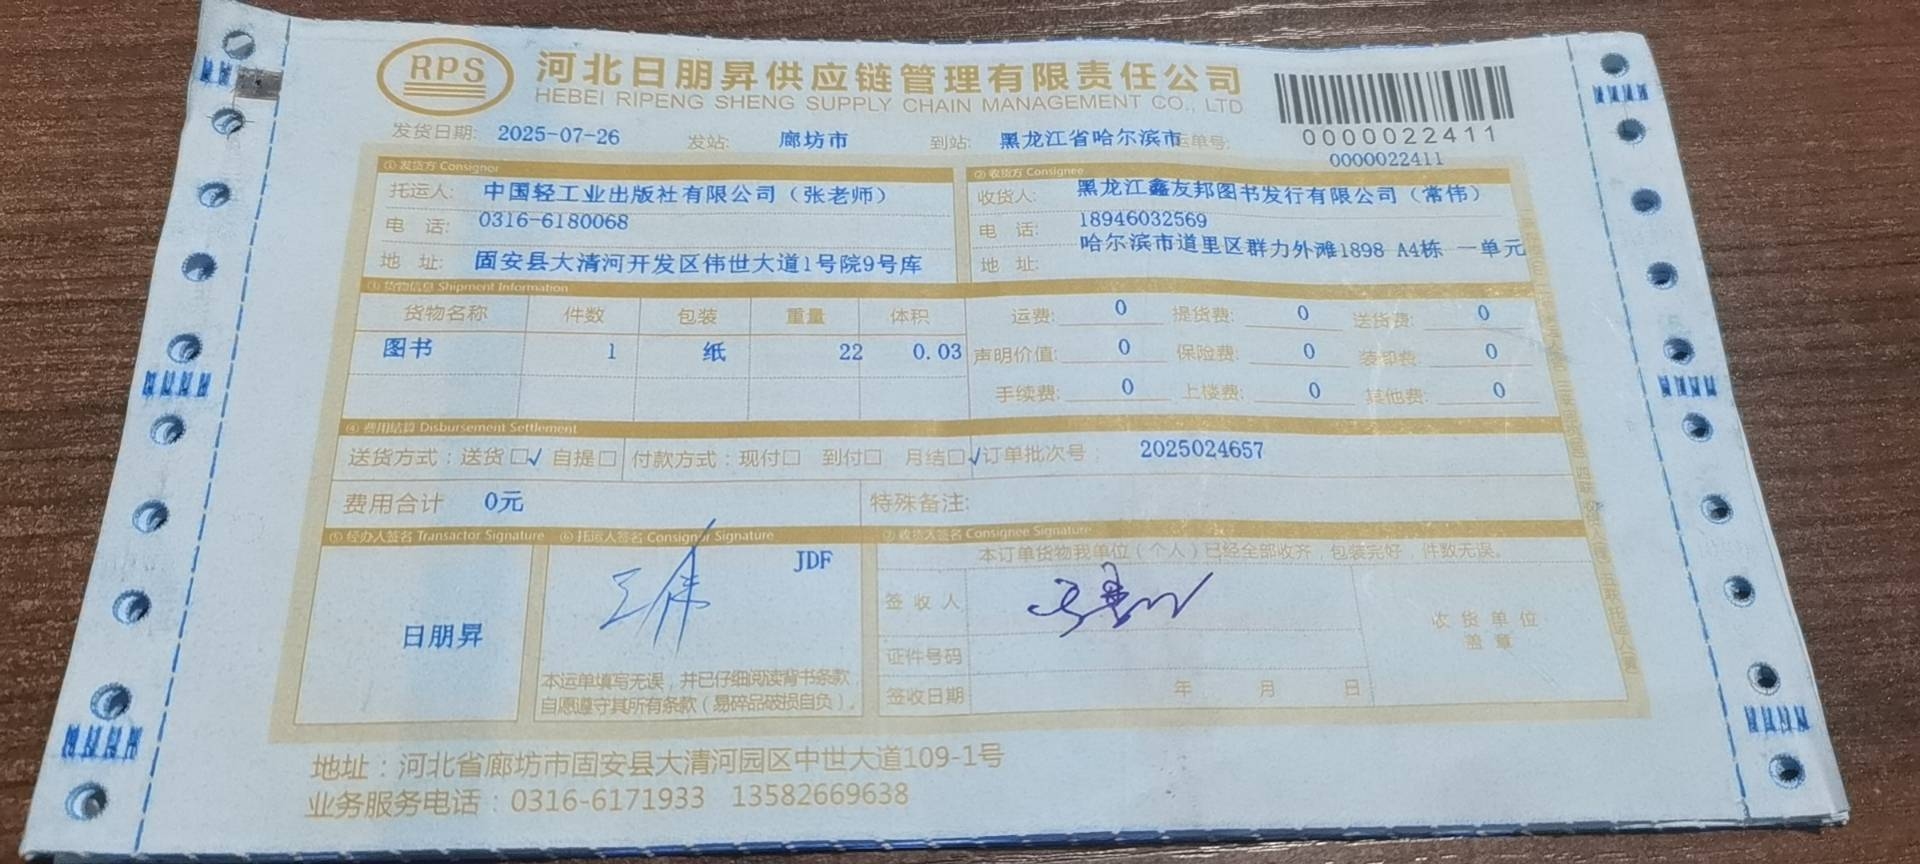 RPS
河北日朋昇供应链管理有限责任公司
HEBEI RIPENG SHENG SUPPLY CHAIN MANAGEMENT CO., LTD
0000022411
发货日期: 2025-07-26 发站: 廊坊市 到站: 黑龙江省哈尔滨市 运单号:
0000022411
① 发货方 Consignor
托运人: 中国轻工业出版社有限公司（张老师）
电 话: 0316-6180068
地 址: 固安县大清河开发区伟世大道1号院9号库
② 收货方 Consignee
收货人: 黑龙江鑫友邦图书发行有限公司（常伟）
电 话: 18946032569
地 址: 哈尔滨市道里区群力外滩1898 A4栋 一单元
③ 货物信息 Shipment Information
货物名称 件数 包装 重量 体积
图书 1 纸 22 0.03
运费: 0 提货费: 0 送货费: 0
声明价值: 0 保险费: 0 装卸费: 0
手续费: 0 上楼费: 0 其他费: 0
④ 费用结算 Disbursement Settlement
送货方式：送货□√ 自提□ 付款方式：现付□ 到付□ 月结□√ 订单批次号： 2025024657
费用合计 0元 特殊备注:
⑤ 经办人签名 Transactor Signature
日朋昇
⑥ 托运人签名 Consignor Signature
JDF
王伟
本运单填写无误，并已仔细阅读背书条款
自愿遵守其所有条款（易碎品破损自负）。
⑦ 收货人签名 Consignee Signature
本订单货物我单位（个人）已经全部收齐，包装完好，件数无误。
签 收 人
证件号码
签收日期 年 月 日
收 货 单 位
盖 章
地址：河北省廊坊市固安县大清河园区中世大道109-1号
业务服务电话：0316-6171933 13582669638